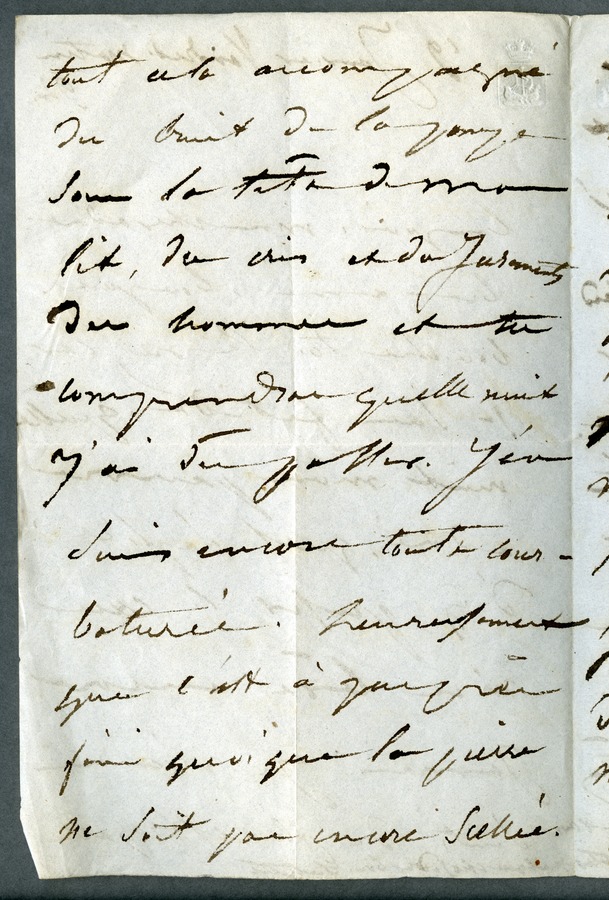 tout cela accompagné
du bruit de la pompe
sous la tête de mon
lit, des cris et des Jurements
Des hommes et tu
comprendras quelle nuit
j'ai du passer. J'en
suis encore toute cour-
baturée. heureusement
que c'est à peu près
fini quoique la pierre
ne soit pas encore scellée.